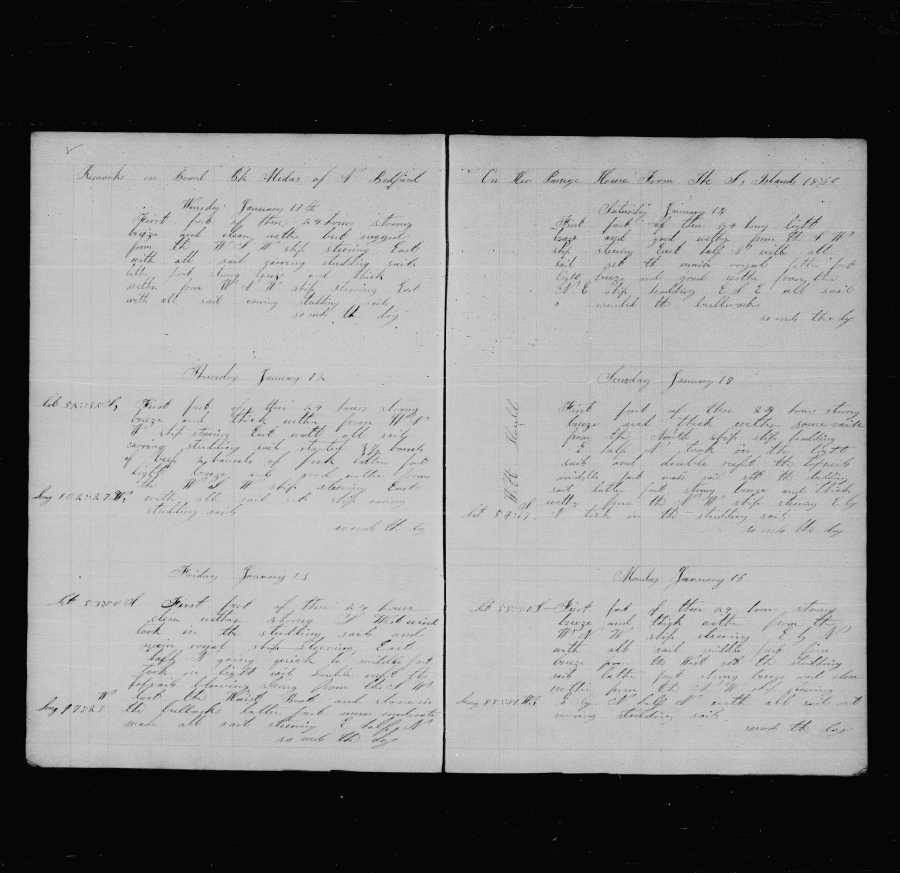 Remarks on Board Bk Midas of N Bedford
Wensday January 11th
First part of thees 24 hours strong
breze and clean wether but rugged
from the W S W ship steering East
with all sail carring studding sails
latter part strong breze and thick
wether from W S W ship steering East
with all sail caring studding sails
so ends th day
Thursday January 12
Lat S, First part of thees 24 hours strong
breze and thick wether from W N
W ship steering East with all sail
carring studding sail started barrels
of beef 2 barrels of pork latter part
light breze and good wether from
the W S W ship steering East
Long W, with all sail set ship caring
studding sails
so ends th day
Friday January 13
Lat S First part of thees 24 hours
clean wether strong S West wind
took in the studding sails and
main royal ship steering East
half N going quick to middle part
took in light sail double reeft the
topsails blowing strong from the S W
lost the Waist Boat and stove in
Long W the bullwarks latter part more moderate
made all sail steering E half N
so ends th day
On Her Passage Home From The S, Islands 1860
Saturday January 14
First part of thees 24 hours light
breze and good wether from the S W
ship steering East half N with all
sail set the main royal latter part
light breze and good wether from the
N E ship heading E S E all sail
mended the bullwarks
so ends the day
Sunday January 15
First part of thees 24 hours strong
breze and thick wether some
from the North ship heading
E half N took in the light
sails and double reeft the topsails
middle part made sail set the studding
sail latter part strong breze and thick
wether from the N W ship steering E by
Lat S N took in the studding sail
so ends the day
W H
Monday January 16
Lat S First part of thees 24 hours strong
breze and thick wether from the
W N W ship steering E by N
with all sail middle part fine
breze from the West set the studding
sail latter part strong breze and clean
wether from the N W ship going
Long W, E by N half N with all sail set
carring studding sails
so ends th day